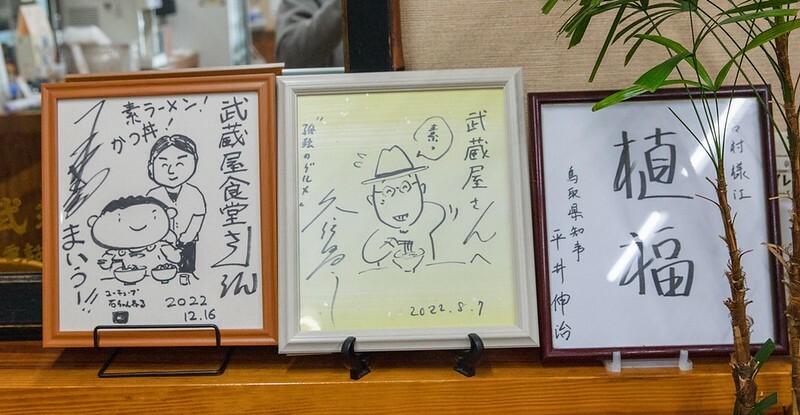 武蔵屋食堂さん
素ラーメン!
かつ丼!
まいうー!!
ユーチューブ
石ちゃんねる
2022
12.16
武蔵屋さんへ
"孤独のグルメ"
2022.8.7
村様江
植福
鳥取県知事
平井伸治